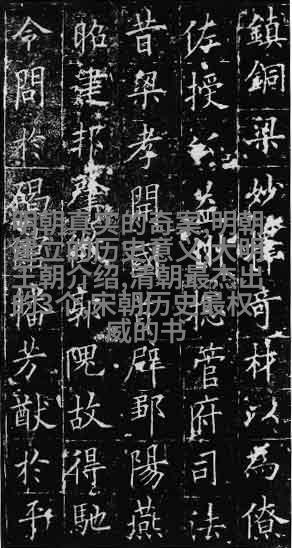 鎮銅梁妙奇材以為僚
佐授益州總管府司法
昔梁孝開國辟鄒陽燕
昭建邦肇郭隗故得馳
令問於碣播芳猷於平
明朝真实的奇案,明朝
建立的历史意义,大明
王朝介绍,清朝最杰出
的3个,宋朝历史最权
威的书